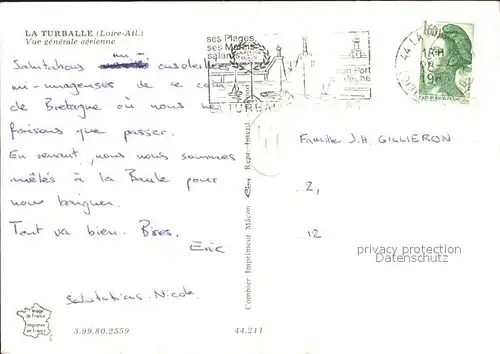 LA TURBALLE (Loire-Atl.)
Vue générale aérienne
ses Plages
ses Marais
salants
son Port
de Pêche
LA TURBALLE
44 LA
18H
Salutations mi ensoleillées
mi-nuageuses, de ce coin
de Bretagne où nous ne
faisons que passer.
En venant, nous nous sommes
arrêtés à la Baule pour
nous baigner.
Tout va bien. Bises.
Eric
Salutations. Nicole
Famille J.H. GILLIERON
2,
12
Combier Imprimeur Mâcon
Repr. Interd.
privacy protection
oldthing.com
Image
de France
Imprimée
en France
3.99.80.2559
44.211